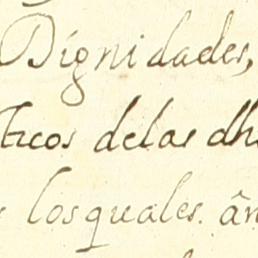 Dignidades,
ticos delas dh
los quales. ân